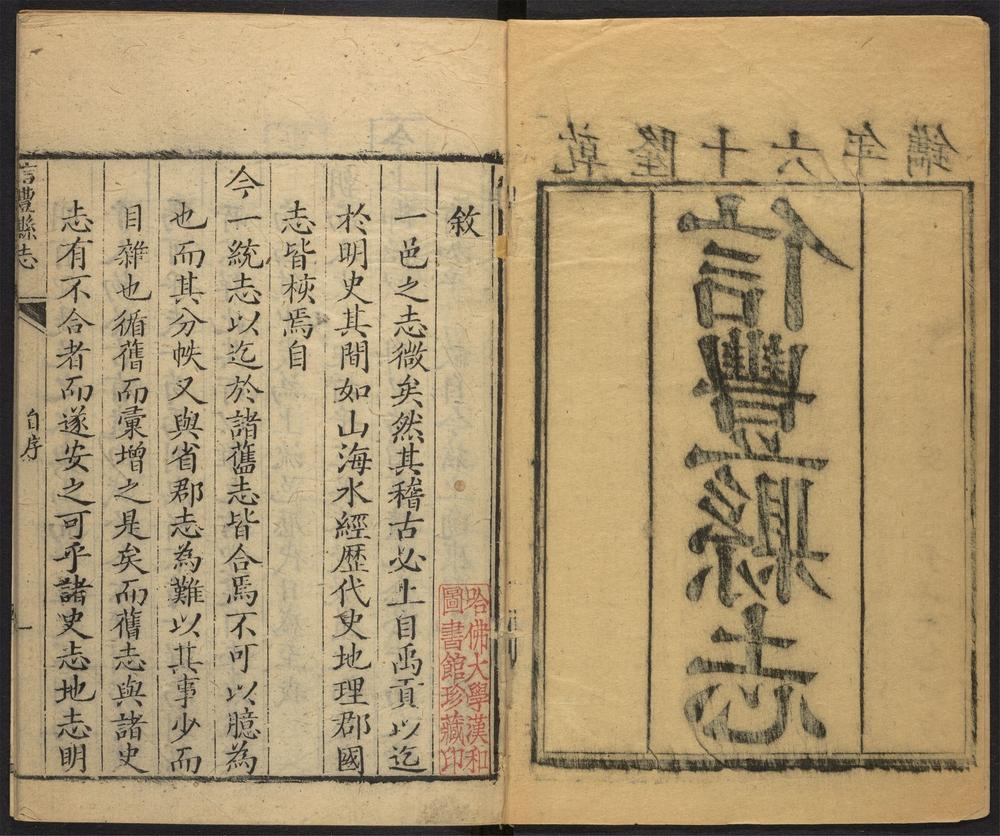 乾隆十六年鐫
信豐縣志
敘
一邑之志微矣然其稽古必上自禹貢以迄
於明史其間如山海水經歷代史地理郡國
志皆核焉自
今一統志以迄於諸舊志皆合焉不可以臆為
也而其分帙又與省郡志為難以其事少而
目雜也循舊而彙增之是矣而舊志與諸史
志有不合者而遂安之可乎諸史志地志明
信豐縣志
自序
一
哈佛大學漢和
圖書館珍藏印